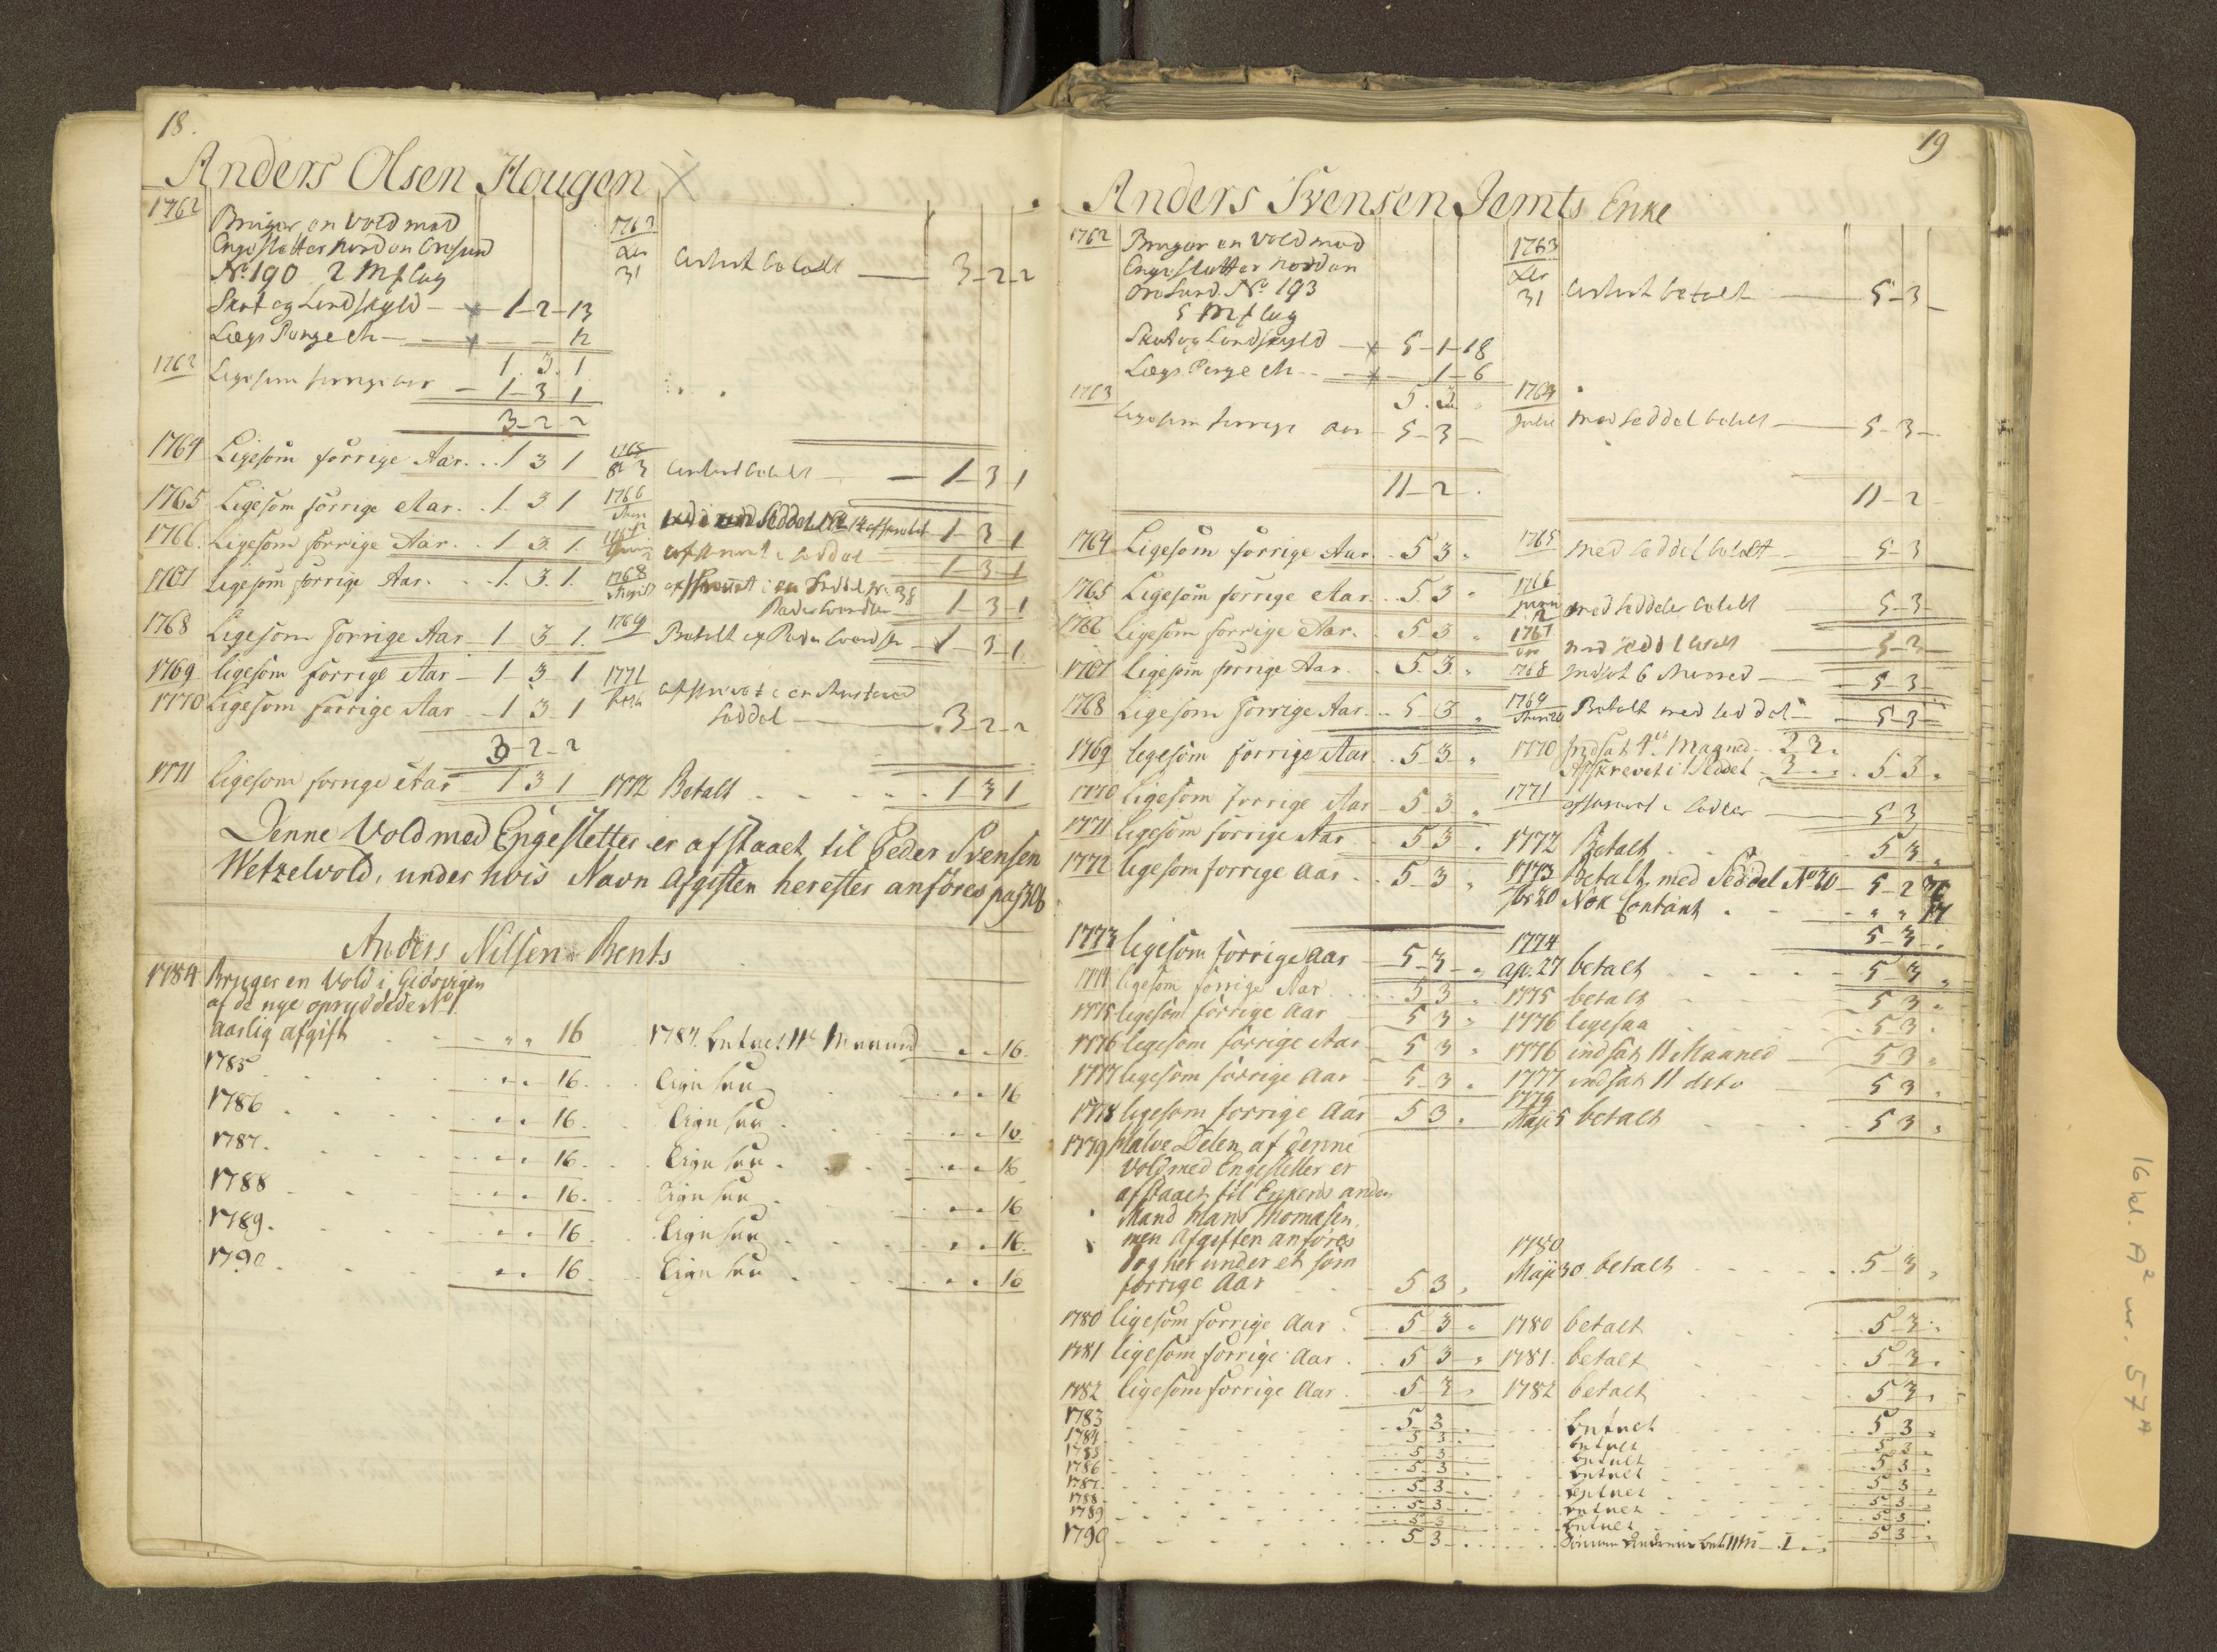 18.
Anders Olsen Hougen
1762 Bruger en Vold med
Engesletter norden Oresund
No. 190 2 M
Skat og Landskyld 1-2-13
Lægs Penge 12
1.3.1
1762 Ligesom forrige aar 1-3-1
3-2-2
1764 Ligesom forrige Aar. 1 3 1
1765 Ligesom forrige Aar. 1. 3 1
1766. Ligesom forrige Aar. 1 3. 1.
1767 Ligesom forrige Aar. 1. 3. 1.
1768 Ligesom forrige Aar 1 3 1.
1769 ligesom forrige Aar 1 3 1
1770 Ligesom forrige Aar 1 3 1
3-2-2
1771 ligesom forrige Aar 1 3 1
1763
31 betalt 3-2-2
1765
3 betalt 1-3-1
1766 Seddel 1-3-1
afskrevet i Seddel 1-3-1
1768 afskrevet i en Seddel No. 38
1-3-1
1769 Betalt af Peder Svendsen 1-3-1
1771 afskrevet i en
Seddel 3-2-2
1772 Betalt 1 3 1
Denne Vold med Engesletter er afstaaet til Peder Svensen
Wetzelvold, under hvis Navn Afgiften herefter anföres pag
Anders Nilsen Bents
1784 Bruger en Vold i Giösvigen
af de nye opryddede No 1.
aarlig afgift 16 1784. betalt 11te Maaned 16.
1785 16. Ligesaa 16
1786 16. Ligesaa 16
1787. 16. Ligesaa 16
1788 16. Ligesaa 16
1789. 16. Ligesaa 16.
1790 16. Ligesaa 16
19
Anders Svensen Jemts Enke
1762 Bruger en Vold med
Engesletter norden
Oresund. No. 193
5 M
Skat og Landskyld 5-1-18
Lægs Penge 1-6
5.3
1763 ligesom forrige Aar 5-3
11-2
1764 Ligesom forrige Aar. 5 3
1765 Ligesom forrige Aar. 5. 3
1766 Ligesom forrige Aar. 5 3
1767 ligesom forrige Aar. 5. 3
1768 Ligesom forrige Aar. 5 3
1769 ligesom forrige Aar. 5 3
1770 ligesom forrige Aar 5 3
1771 ligesom forrige Aar 5 3
1772 ligesom forrige Aar 5-3
1773 ligesom forrige Aar 5-3
1774 ligesom forrige Aar 5 3
1775 ligesom forrige Aar 5 3
1776 ligesom forrige Aar 5 3
1777 ligesom forrige Aar 5 3
1778 ligesom forrige Aar 5 3
1779 halve Delen af denne
Vold med Engesletter er
afstaaet til Enkens anden
Mand Hans Thomasen,
men Afgiften anföres
dog her under et som
forrige Aar 5 3
1780 ligesom forrige Aar 5 3
1781 ligesom forrige Aar 5 3
1782 ligesom forrige Aar 5 3
1783 5 3
1784 5 3
1785 5 3
1786 5 3
1787 5 3
1788 5 3
1789 5 3
1790 5 3
1763
31 betalt 5-3
1764
Julii med Seddel betalt 5-3
11-2
1765 med Seddel betalt 5-3
1766
Junii med Seddel betalt 5-3
1767 med Seddel betalt 5-3
1768 indsat 6 Maaned 5-3
1769 Betalt med Seddel 5-3
1770 Indsat 4de Maaned 2 3
Afskrevet i Seddel 3 5 3
1771 afskrevet i Seddel 5 3
1772 Betalt 5 3
1773 betalt med Seddel No 20 5-2
Nok Contant
5-3
1774
Ap. 27 betalt 5 3
1775 betalt 5 3
1776 ligesaa 5 3
1776 indsat 11 Maaned 5 3
1777 indsat 11 dito 5 3
1779
Maji 5 betalt 5 3
1780
Maji 30 betalt 5-3
1780 betalt 5 3
1781. betalt 5 3
1782 betalt 5 3
betalt 5 3
betalt 5 3
betalt 5 3
betalt 5 3
betalt 5 3
betalt 5 3
betalt 5 3
16 kl. A² nr. 57ᴬ